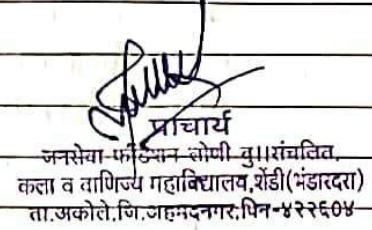 प्राचार्य
जनसेवा फौंडेशन लोणी बु।।संचलित,
कला व वाणिज्य महाविद्यालय,शेंडी(भंडारदरा)
ता.अकोले,जि.अहमदनगर,पिन-४२२६०४